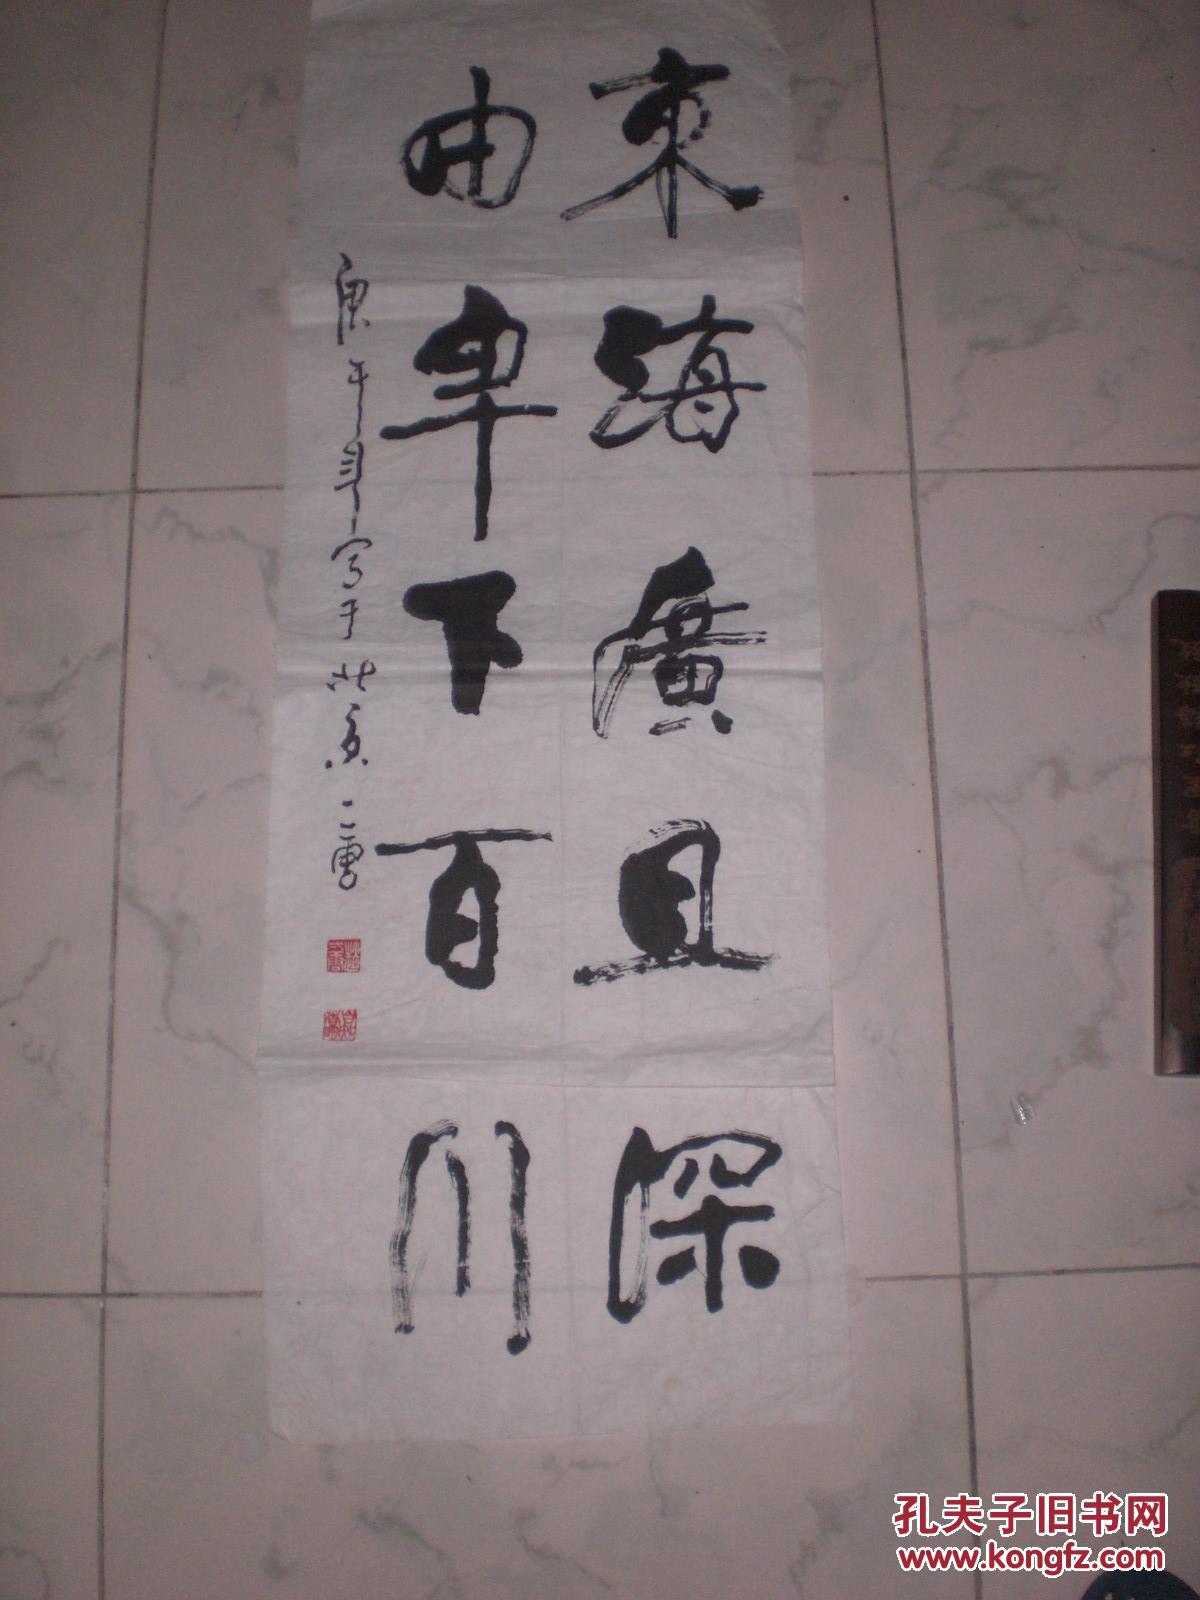 東海廣且深
由卑下百川
庚午年写于北京
孔夫子旧书网
www.kongfz.com